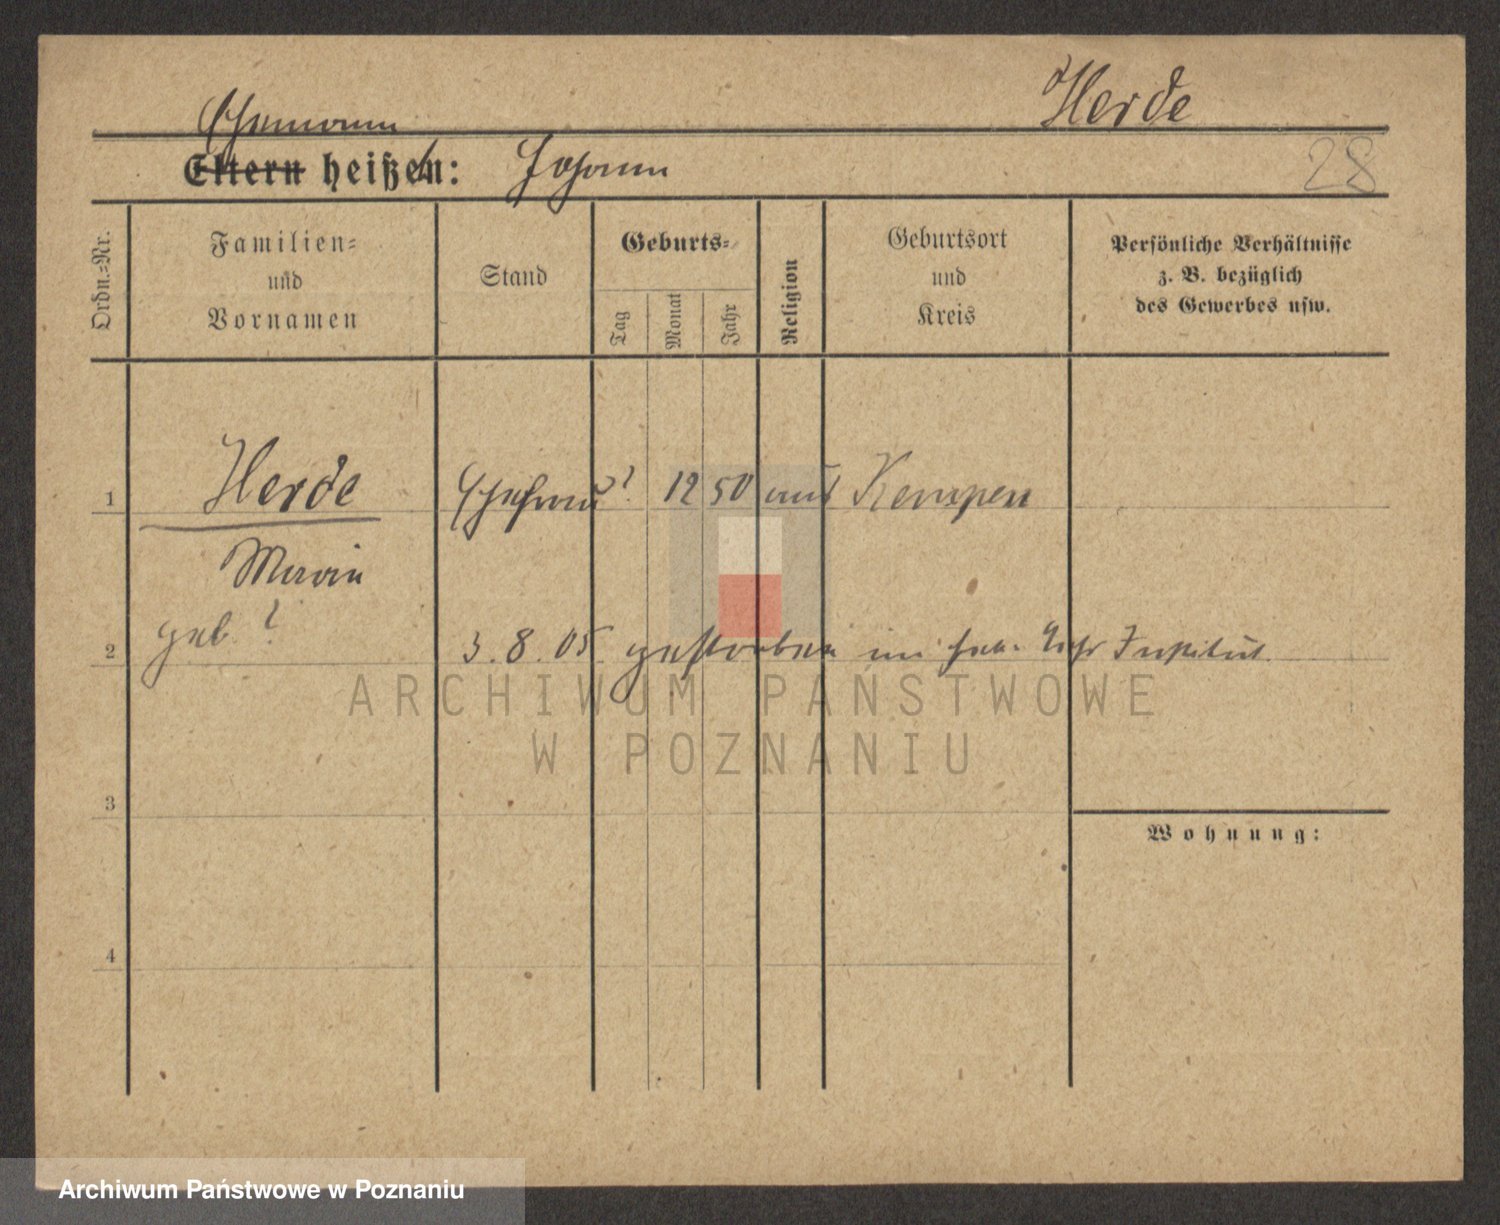 Herde
Ehemann
Eltern heißen: Johann
28
Ordn.=Nr.
Familien=
und
Vornamen
Stand
Geburts=
Tag
Monat
Jahr
Religion
Geburtsort
und
Kreis
Persönliche Verhältnisse
z. B. bezüglich
des Gewerbes usw.
1 Herde Ehefrau ? 12 50 aus Kempen
Maria
geb. ?
2 3. 8. 05 gestorben im Institut.
ARCHIWUM PAŃSTWOWE
W POZNANIU
3
Wohnung:
4
Archiwum Państwowe w Poznaniu